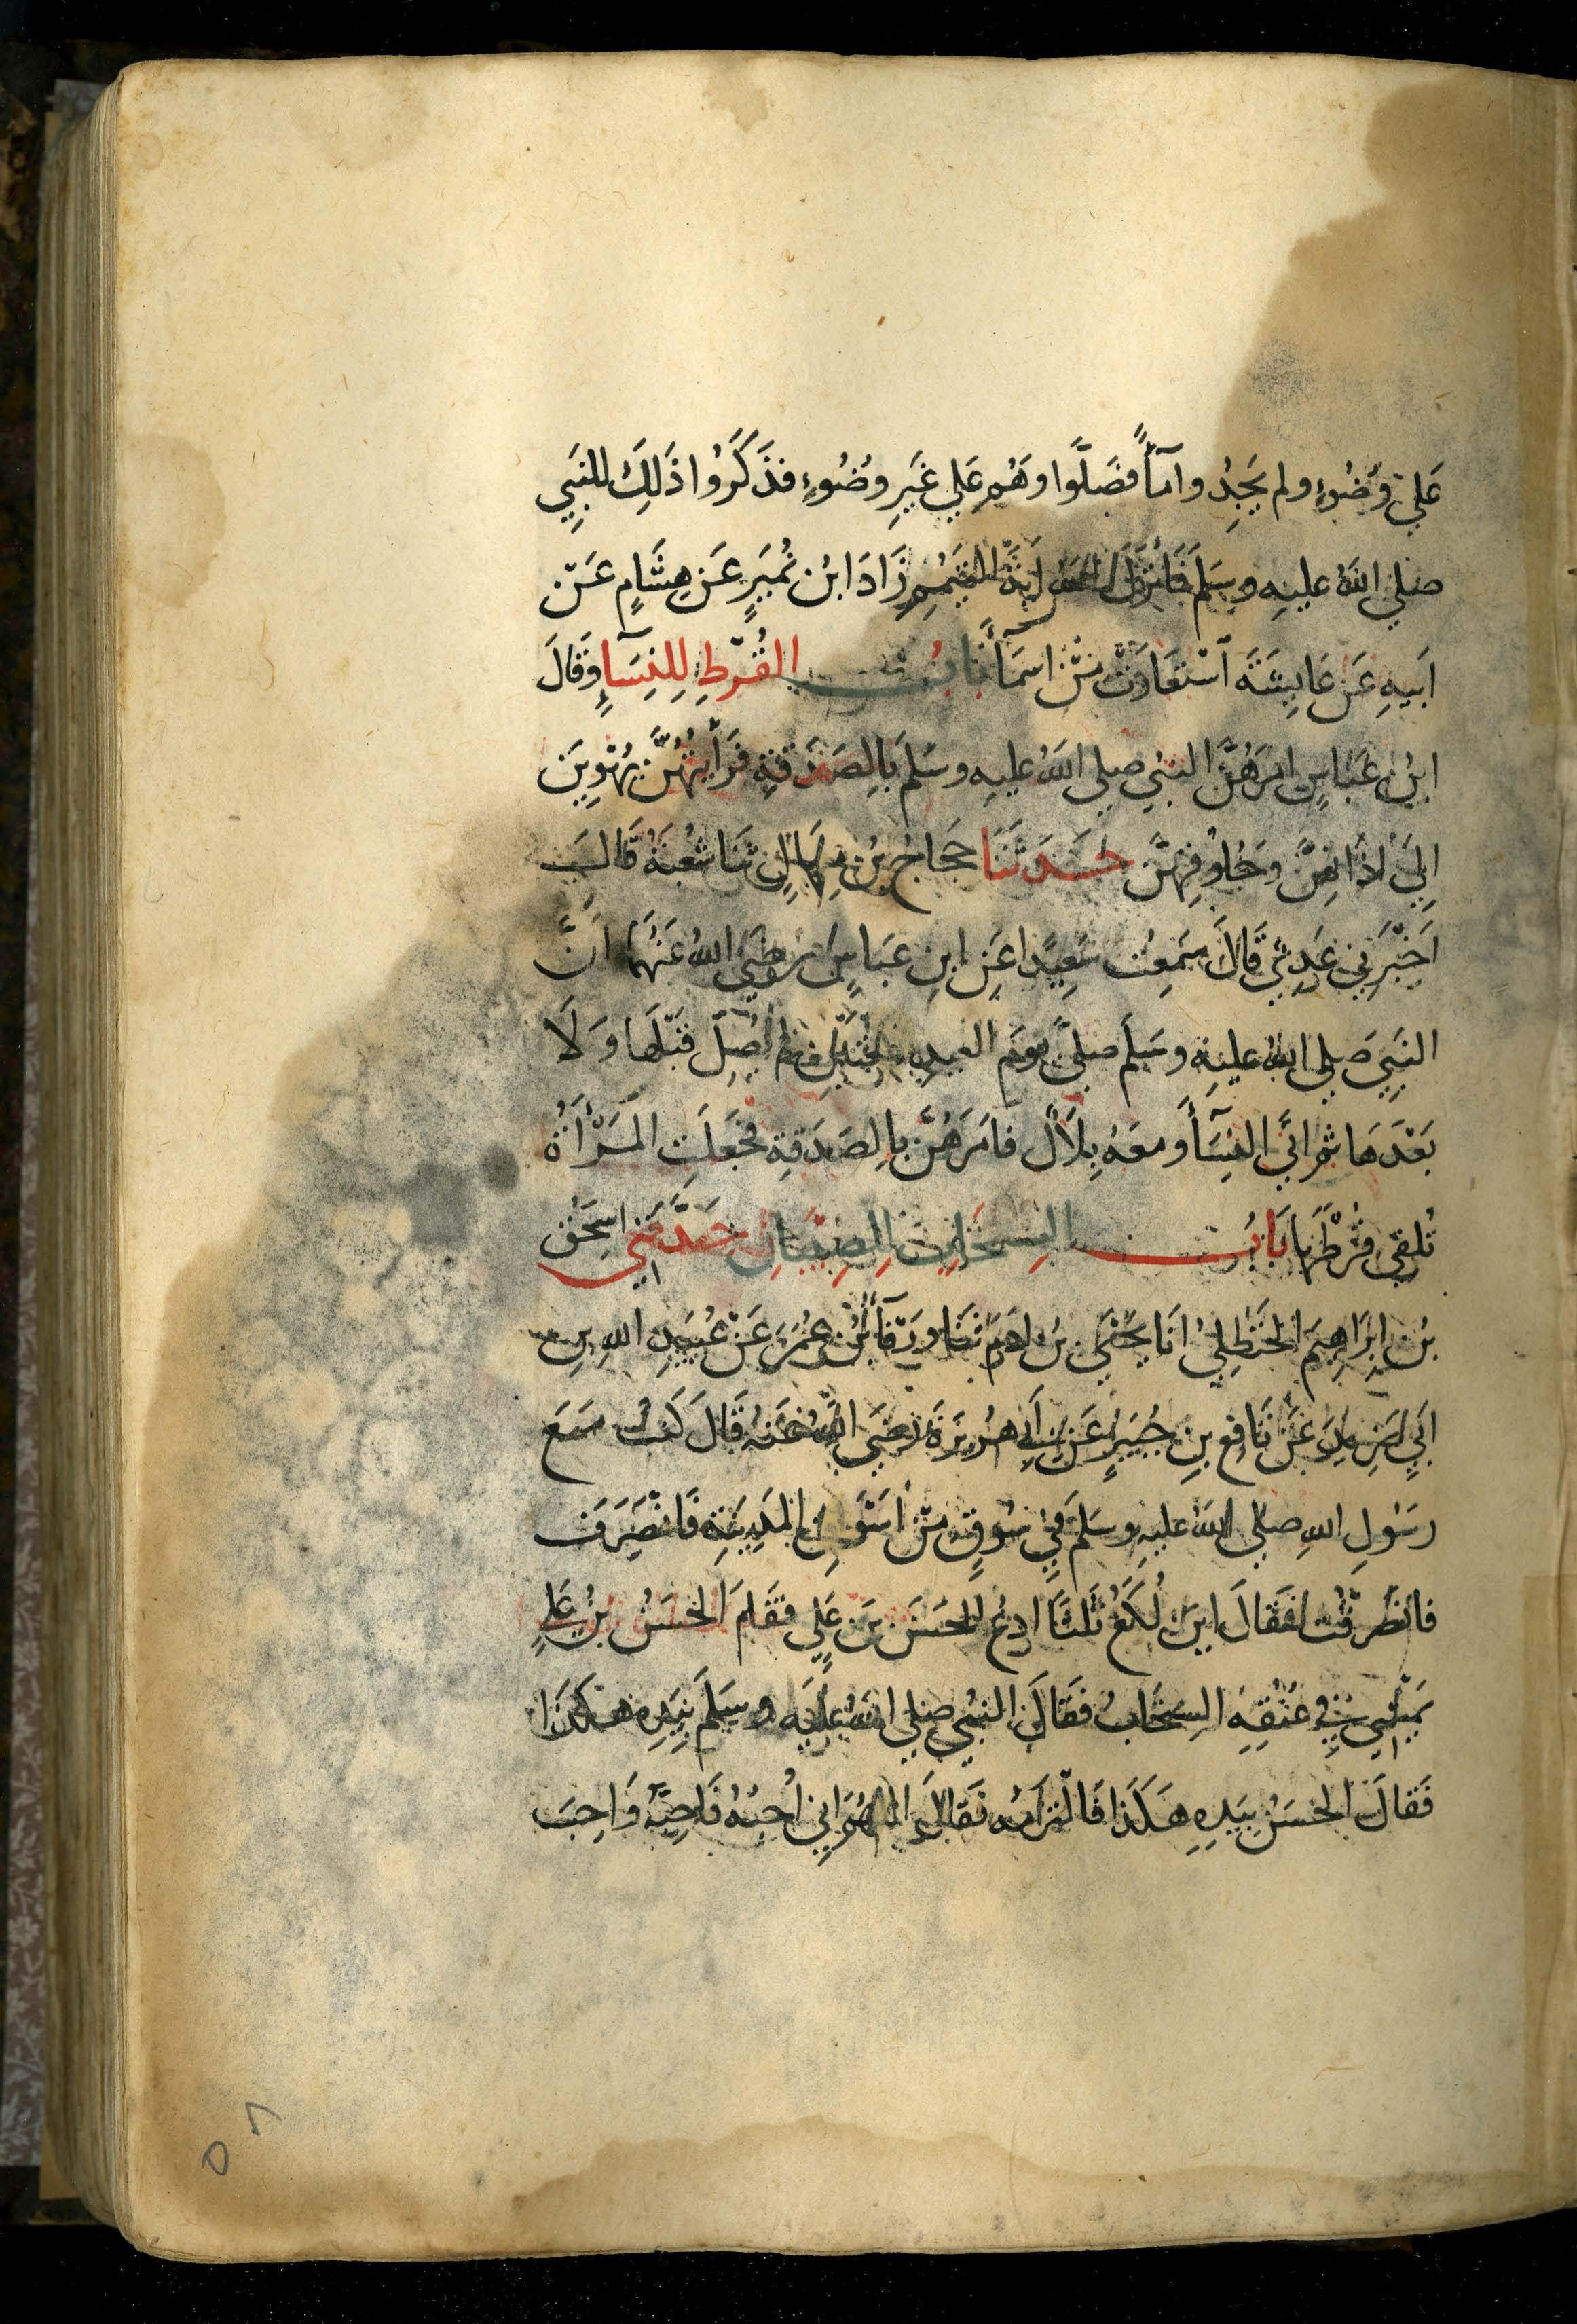 عَلي وُضُوءٍ ولم يَجِدُوا مآءً فصَلَّوا وهُم عَلي غَيرِ وضُوءٍ فذَكَرُوا ذَلِكَ للنَبِي
صلي اللهُ عليهِ وسَلمَ فَانزَلَ اللهُ ايَةَ التَيَمُمِ زَادَ ابنُ نُمَيرٍ عَن هِشَامٍ عَن
اَبيهِ عَن عَايِشَةَ اسْتعَارَت مِنْ اسمَآءَ بابُ القُرْطِ لِلنِسَآءِ وَقَالَ
ابنُ عَبَاسٍ امَرَهُنَّ النبيُ صلي اللهُ عليهِ وسَلمَ بِالصَدَقةِ فَرَأَيتُهُنَّ يَهْوِينَ
اِلَي اذَانِهِنَّ وحُلُوقِهِنَّ حَدَثَنَا حَجَاجُ بنُ مِنهَالٍ ثنَا شعْبَةُ قَالَ
اَخْبَرَنِي عَدِيٌ قَالَ سَمِعْتُ سَعِيدًا عَنِ ابنِ عَبَاسٍ رَضِيَ اللهُ عَنهُمَا اَنَّ
النَبِيَ صَلي اللهُ عليهِ وسَلمَ صلَّي يومَ العِيدِ رَكعَتَينِ لم يُصَلِّ قَبْلَهَا وَلَا
بَعْدَهَا ثُمَ اتَي النِسَآءَ ومعَهُ بِلَالٌ فَامَرَهُنَّ بِالصَدَقةِ فَجَعَلَتِ المَرْأَةُ
تُلقِي قُرْطَهَا بَابُ السِخَابِ لِلصِبيَانِ حَدَّثنِي اسحَقُ
بنُ ابرَاهِيمَ الحَنْظَلِيُ انَا يَحْيَي بنُ ادَمَ ثنَا ورقَآءُ بنُ عُمَرَ عَنْ عُبَيدِ اللهِ بنِ
اَبِي يَزِيدَ عَن نَافِعِ بنِ جُبَيرٍ عَن اَبِي هُرَيرَةَ رَضِيَ اللهُ عَنهُ قَالَ كُنتُ مَعَ
رَسُولِ اللهِ صلي اللهُ عليهِ وسَلمَ فِي سُوقٍ مِنْ اَسْوَاقِ المَدِينَةِ فَانْصَرَفَ
فانصَرَفْتُ فقَالَ اينَ لُكَعُ ثَلثًا ادعُ الحَسَنَ بنَ عَلِي فقَامَ الحَسَنُ بنُ عَلِي
يَمْشِي وفِي عُنُقِهِ السِخَابُ فقَالَ النبيُ صلي اللهُ عليهِ وسَلمَ بِيَدِهِ هكَذَا
فَقالَ الحَسَنُ بِيَدِهِ هَكَذَا فَالْتزَمَهُ فَقَالَ اللهُمَ اِنِي اُحِبُهُ فَاَحِبَّهُ وَاَحِبَ
٥٨